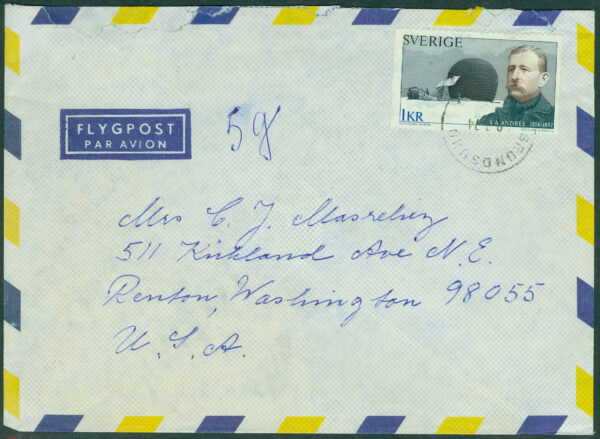 SVERIGE
1KR
S A ANDRÉE 1854-1897
FLYGPOST
PAR AVION
5g
GRUNDSUND
Mrs C. J. Masreliez
511 Kirkland Ave N.E.
Renton, Washington 98055
U.S.A.